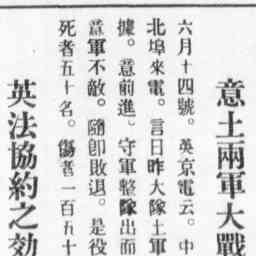 意土兩軍大戰
六月十四號。英京電云。中
北埠來電。言日昨大隊土軍
據。意前進。守軍整隊出而
意軍不敵。隨卽敗退。是役
死者五十名。傷者一百五十
英法協約之効